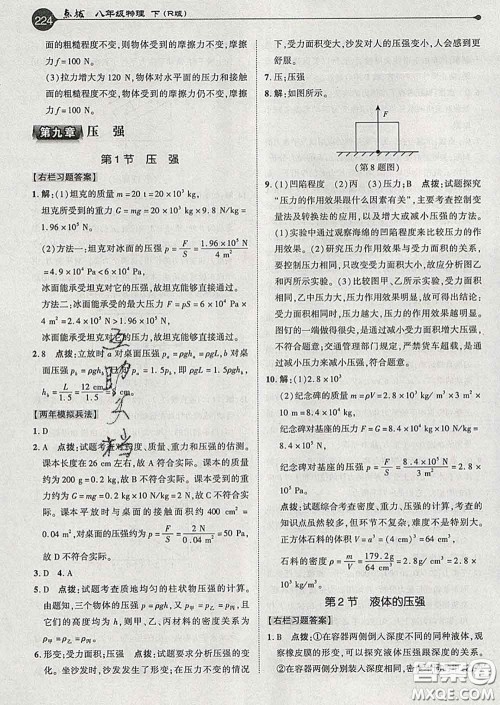 224 点拨 八年级物理 下(R版)
面的粗糙程度不变,则物体受到的摩擦力不变,摩擦
力 f = 100 N。
(3)拉力增大为 120 N,物体对水平面的压力和接触
面的粗糙程度不变,物体受到的摩擦力仍不变,摩擦
力 f = 100 N。
第九章 压 强
第1节 压 强
【右栏习题答案】
1. 解:(1)坦克的质量 m = 20 t = 20 × 10³ kg,
坦克所受的重力 G = mg = 20 × 10³ kg × 9.8 N/kg =
1.96 × 10⁵ N。
(2)方法一:坦克对冰面的压强 p = F/S = 1.96 × 10⁵ N / 4 m²
= 4.9 × 10⁴ Pa < 6 × 10⁴ Pa,
冰面能承受坦克对它的压强,故坦克能通过冰面。
方法二:冰面能承受的最大压力 F = pS = 6 × 10⁴ Pa
× 4 m² = 2.4 × 10⁵ N > 1.96 × 10⁵ N,
冰面能承受坦克对它的压力,故坦克能通过冰面。
2. 8 点拨:立放时 a 对桌面压强 pₐ = ρghₐ = ρgL, b 对桌
面压强 p_b = ρgh_b, 因 pₐ = 1.5p_b, 即 ρgL = 1.5ρgh_b,
h_b = L/1.5 = 12 cm/1.5 = 8 cm。
【两年模拟兵法】
1. D
2. A 点拨:试题考查对密度、重力和压强的估测。
课本长度在 26 cm 左右,故 A 符合实际。课本的质量
约为 200 g = 0.2 kg,故 B 不符合实际。课本的重力约
为 G = mg = 0.2 kg × 10 N/kg = 2 N,故 C 不符合实
际。课本平放时与桌面的接触面积约 400 cm² =
0.04 m²,对桌面的压强约为 p = F/S = 2 N/0.04 m² = 50 Pa,
故 D 不符合实际。
3. D 4. A
5. D 点拨:试题考查质地均匀的柱状物压强计算。
由题知,三个物体的压强 p = ρgh,又三个压强相同,且
它们的高度均为 h,则三者的密度相同,即 ρ甲 = ρ乙 =
ρ丙,所以 p甲 = p乙 = p丙。
6. 形变;受力面积 点拨:试题要求分析压强的变
化。坐沙发时,沙发发生了形变;在压力不变的情况
下,受力面积增大,对沙发的压强变小,人会感觉更
舒服。
7. 压;压强
8. 解:如图所示。
F
(第8题图)
9. (1)凹陷程度 (2)丙 (3)压力;B 点拨:试题探究
“压力的作用效果跟什么因素有关”,主要考查控制变
量法及转换法的应用,以及增大或减小压强的方法。
(1)实验中通过观察海绵的凹陷程度来比较压力的作
用效果。(2)研究压力大小与受力面积的关系时,要
控制压力相同,受力面积大小不同,故应分析图乙
和丙所示实验。(3)比较图甲、乙可得,在受力面积相
同时,压力大,压力的作用效果明显。故可得出结论:
受力面积相同时,压力越大,压力作用效果越明显。
图钉尖做得很尖,是通过减小受力面积来增大压强
的,不符合题意;书包要用宽的背带,是在压力一定时,
通过增大受力面积来减小压强的,不符合题意;菜刀
要经常磨,是通过减小受力面积来增大压强的,不符
合题意;交通管理部门规定,严禁货车超载,是通过
减小压力减小压强的,符合题意。
10. 解:(1)2.8 × 10³
(2)纪念碑的质量 m = ρV = 2.8 × 10³ kg/m³ × 3 m³
= 8.4 × 10³ kg。
纪念碑对基座的压力 F = G = mg = 8.4 × 10³ kg ×
10 N/kg = 8.4 × 10⁴ N。
纪念碑对基座的压强 p = F/S = 8.4 × 10⁴ N/3 m² = 2.8 ×
10⁴ Pa。
点拨:试题综合考查密度、压强的计算,考查的
知识点虽然较多,但环节不复杂,难度不大。
正方体样品的体积 V = (4 cm)³ = 64 cm³,
石料的密度 ρ = m/V = 179.2 g/64 cm³ = 2.8 g/cm³ = 2.8 ×
10³ kg/m³。
第2节 液体的压强
【右栏习题答案】
1. B 点拨:①在容器两侧倒入深度相同的同种液体,
观察橡皮膜,可以探究压强与液体深度的关系;
②在容器两侧分别装入深度相同,
互助文档
答案圈
MXQE.COM